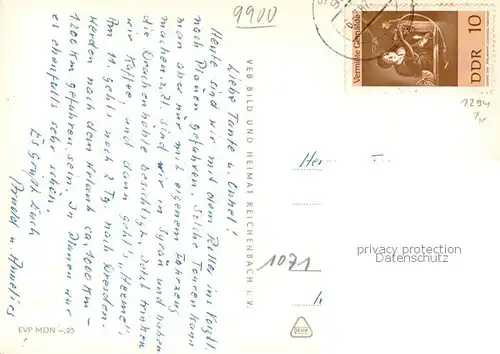 9900
Liebe Tante u. Onkel!
Heute sind wir mit dem Roller ins Vogtl.
nach Plauen gefahren. Solche Touren kann
man aber nur mit eigenem Fahrzeug
machen. z.Zt. sind wir in Syrau und haben
die Drachenhöhle besichtigt. Jetzt trinken
wir Kaffee, und dann geht's "Heeme".
Am 11. geht's noch 2 Tg. nach Dresden.
Werden nach dem Urlaub ca. 1000 Km -
1200 Km gefahren sein. In Plauen war
es ebenfalls sehr schön.
Es grüßt Euch
Arnold u.
EVP MDN -,25
VEB BILD UND HEIMAT REICHENBACH i. V.
Vermißte Gemälde
DDR 10
1294
Her
1071
privacy protection
Datenschutz